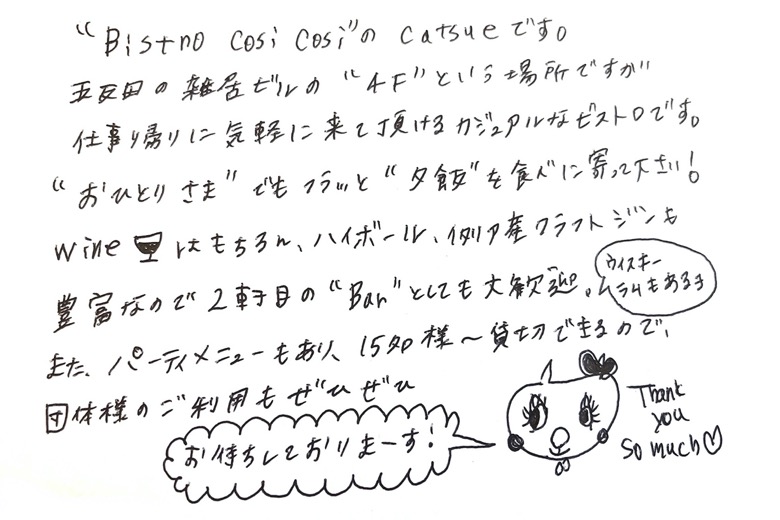 “Bistro cosi cosi”の catsueです。
五反田の雑居ビルの“4F”という場所ですが
仕事帰りに気軽に来て頂けるカジュアルなビストロです。
“おひとりさま”でもフラッと“夕飯”を食べに寄って下さい!
wine はもちろん、ハイボール、イタリア産クラフトジンも
豊富なので2軒目の“Bar”としても大歓迎。
ウィスキー
ラムもあるョ
また、パーティメニューもあり、15名様〜貸切できるので、
団体様のご利用もぜひぜひ
お待ちしておりまーす!
Thank
you
so much♡